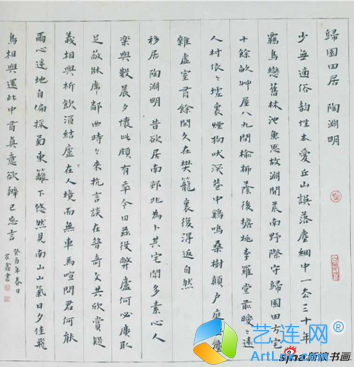 歸園田居 陶淵明
少無適俗韵性本愛丘山誤落塵網中一去三十年
羈鳥戀舊林池魚思故淵開荒南野際守拙歸園田方宅
十餘畝草屋八九間榆柳蔭後檐桃李羅堂前曖曖遠
人村依依墟裏煙狗吠深巷中雞鳴桑樹顛戶庭無塵
雜虛室有餘閑久在樊籠裏復得返自然
移居 陶淵明 昔欲居南邨非為卜其宅聞多素心人
樂與數晨夕懷此頗有年今日茲役弊廬何必廣取
足蔽牀席鄰曲時時來抗言談在昔奇文共欣賞疑
義相與析飲酒結廬在人境而無車馬喧問君何能
爾心遠地自偏採菊東籬下悠然見南山山氣日夕佳飛
鳥相與還此中有真意欲辨已忘言
年春日
艺连网
sina新浪书画